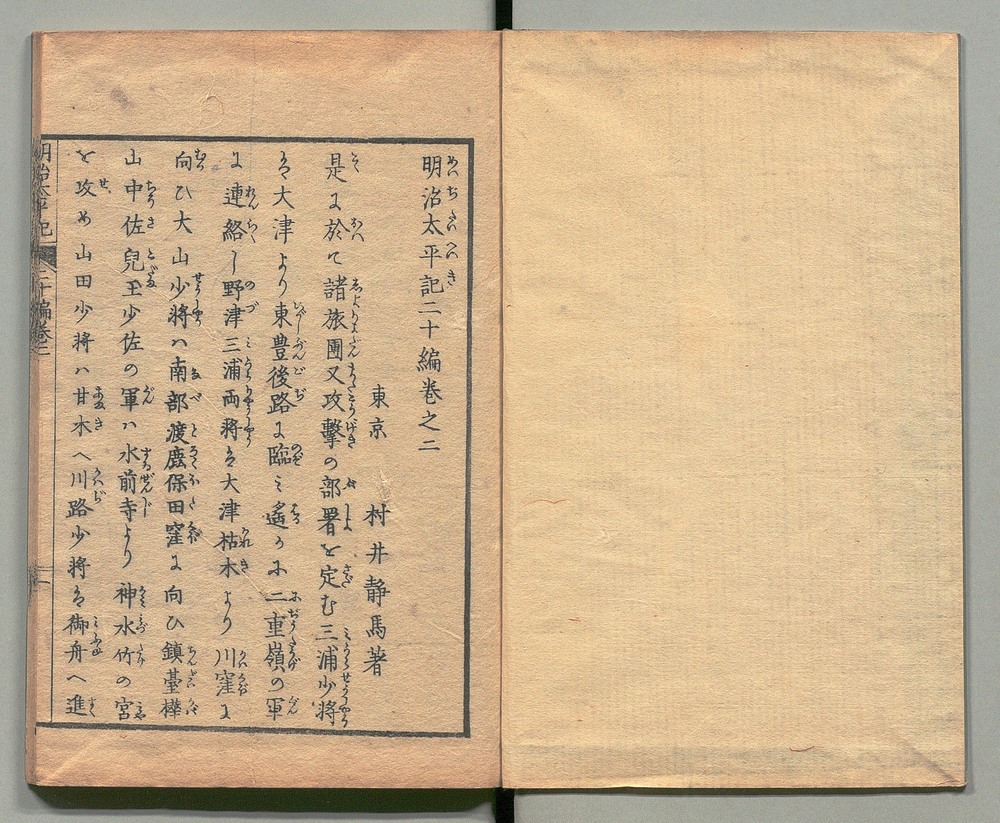 明治太平記二十編巻之二
東京　村井静馬著
是に於て諸旅團又攻擊の部署を定む三浦少将
は大津より東豊後路に臨み遙かに二重嶺の軍
に連絡し野津三浦両将は大津枯木より川窪に
向ひ大山少将ハ南部渡鹿保田窪に向ひ鎮臺樺
山中佐兒玉少佐の軍ハ水前寺より神水竹の宮
を攻め山田少将ハ甘木へ川路少将は御舟へ進
明治太平記　二十編巻二